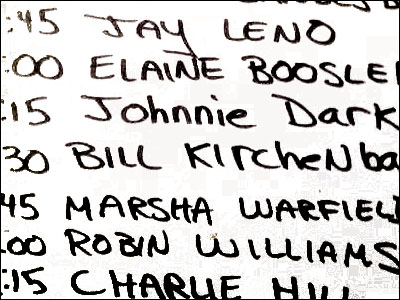 :45 JAY LENO
:00 ELAINE BOOSLE
:15 Johnnie Dark
30 BILL KIrcheNba
45 MARSHA WARFIEL
:00 ROBIN WILLIAMS
:15 CHARLIE HILL